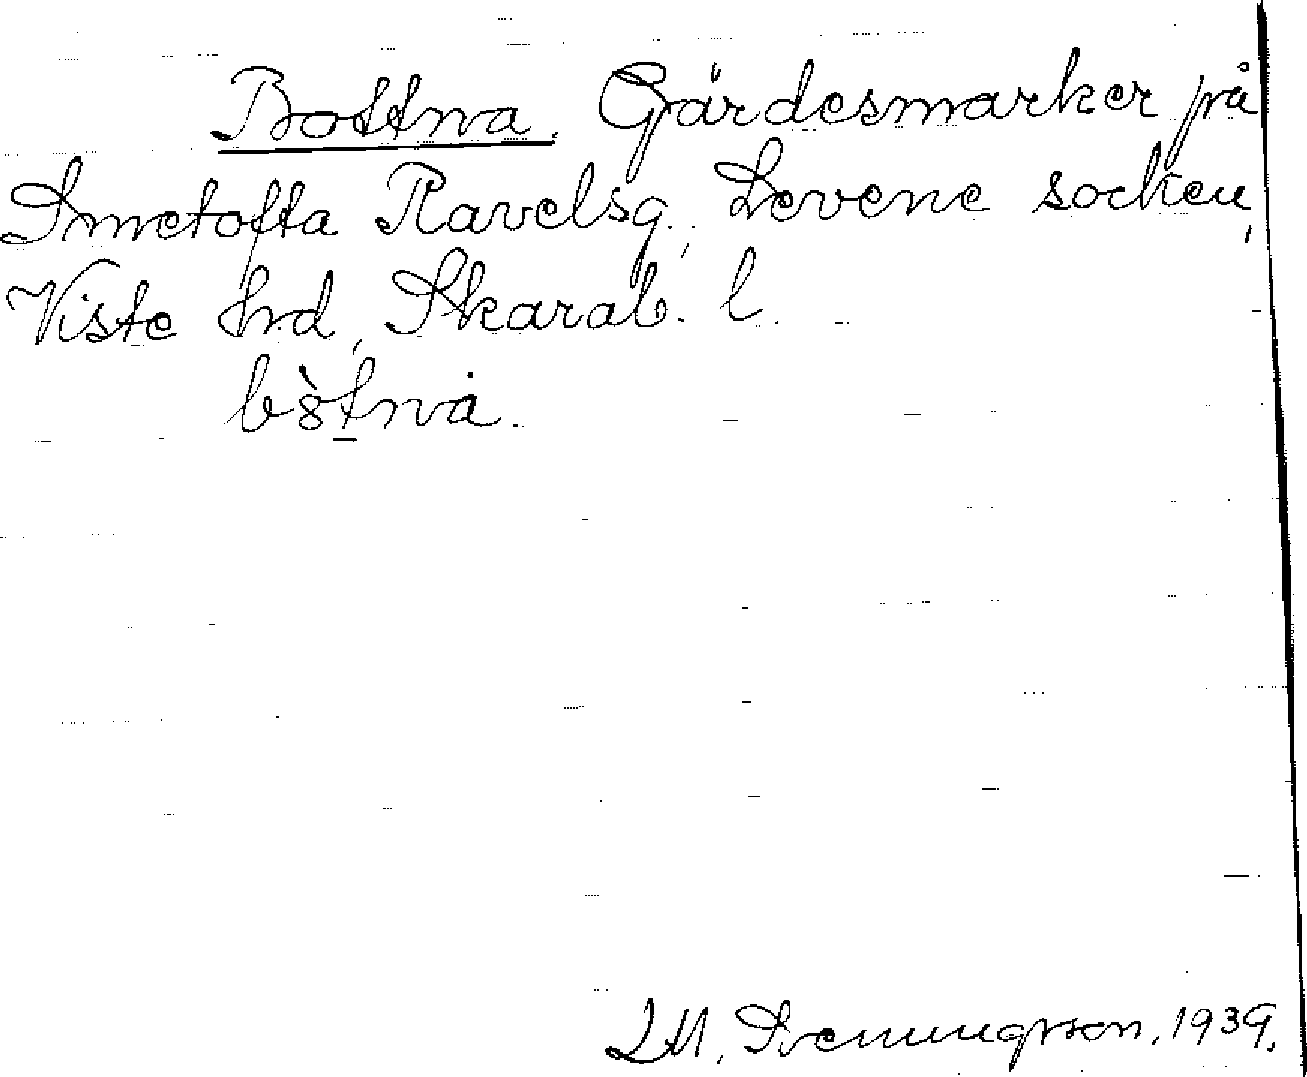 Bottna. Gärdesmarker på
Smetofta Ravelsg., Levene socken,
Viste hrd, Skarab. l.
bòtna.
I.M. Svenungsson, 1939.